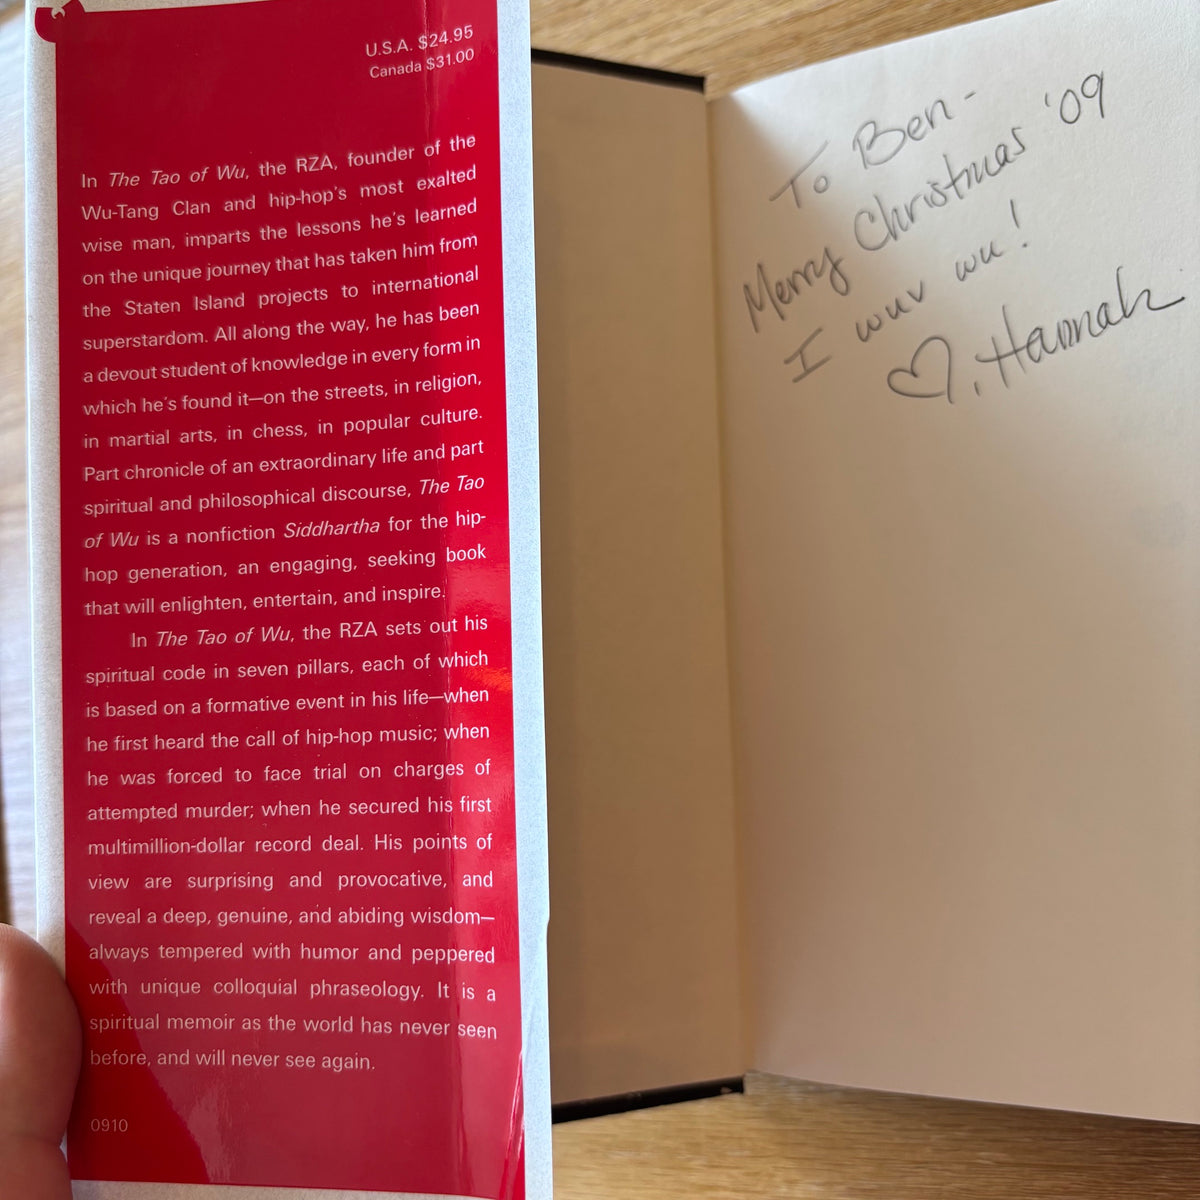 U.S.A. $24.95
Canada $31.00
In The Tao of Wu, the RZA, founder of the
Wu-Tang Clan and hip-hop's most exalted
wise man, imparts the lessons he's learned
on the unique journey that has taken him from
the Staten Island projects to international
superstardom. All along the way, he has been
a devout student of knowledge in every form in
which he's found it—on the streets, in religion,
in martial arts, in chess, in popular culture.
Part chronicle of an extraordinary life and part
spiritual and philosophical discourse, The Tao
of Wu is a nonfiction Siddhartha for the hip-
hop generation, an engaging, seeking book
that will enlighten, entertain, and inspire.
In The Tao of Wu, the RZA sets out his
spiritual code in seven pillars, each of which
is based on a formative event in his life—when
he first heard the call of hip-hop music; when
he was forced to face trial on charges of
attempted murder; when he secured his first
multimillion-dollar record deal. His points of
view are surprising and provocative, and
reveal a deep, genuine, and abiding wisdom—
always tempered with humor and peppered
with unique colloquial phraseology. It is a
spiritual memoir as the world has never seen
before, and will never see again.
0910
To Ben-
Merry Christmas '09
I wuv wu!
♡, Hannah